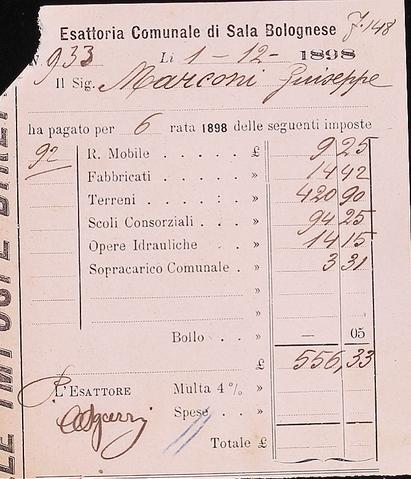 Esattoria Comunale di Sala Bolognese
N 933 Li 1-12- 1898
Il Sig. Marconi Guiseppe
ha pagato per 6 rata 1898 delle seguenti imposte
92 R. Mobile . . . . . £ 9 25
Fabbricati . . . . . » 14 42
Terreni . . . . : . » 420 90
Scoli Consorziali . . . » 94 25
Opere Idrauliche . . » 14 15
Sopracarico Comunale . » 3 31
»
»
Bollo . . » — 05
£ 556,33
L'ESATTORE Multa 4 % . »
Spese . . »
Totale £